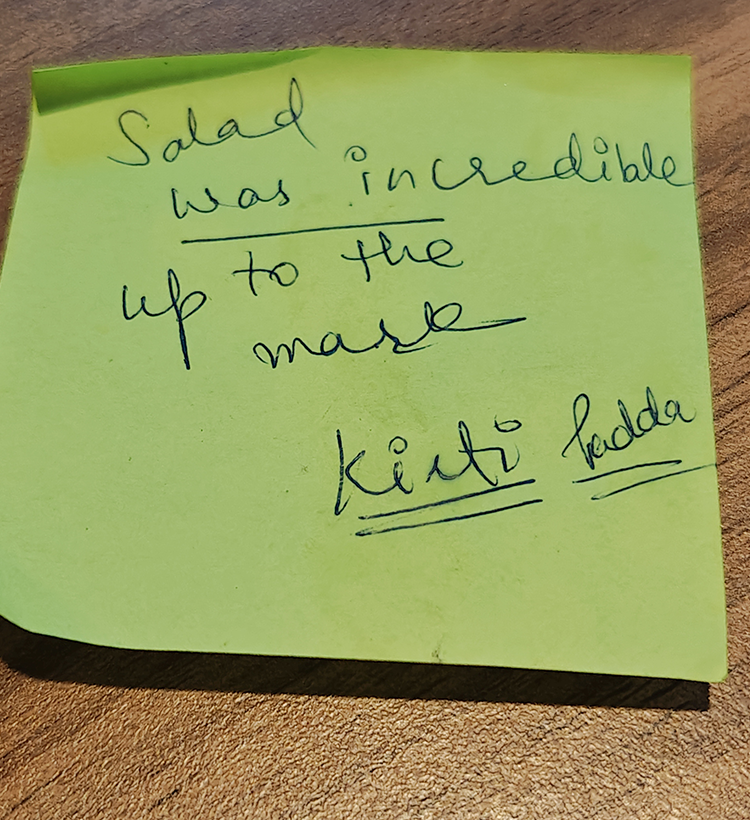 Salad
was incredible
up to the
mark
Kirti